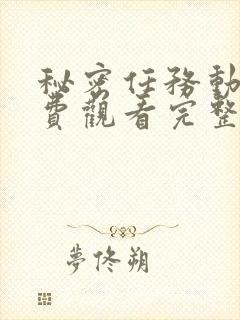 秘密任務動
費觀看完整
夢佟朔